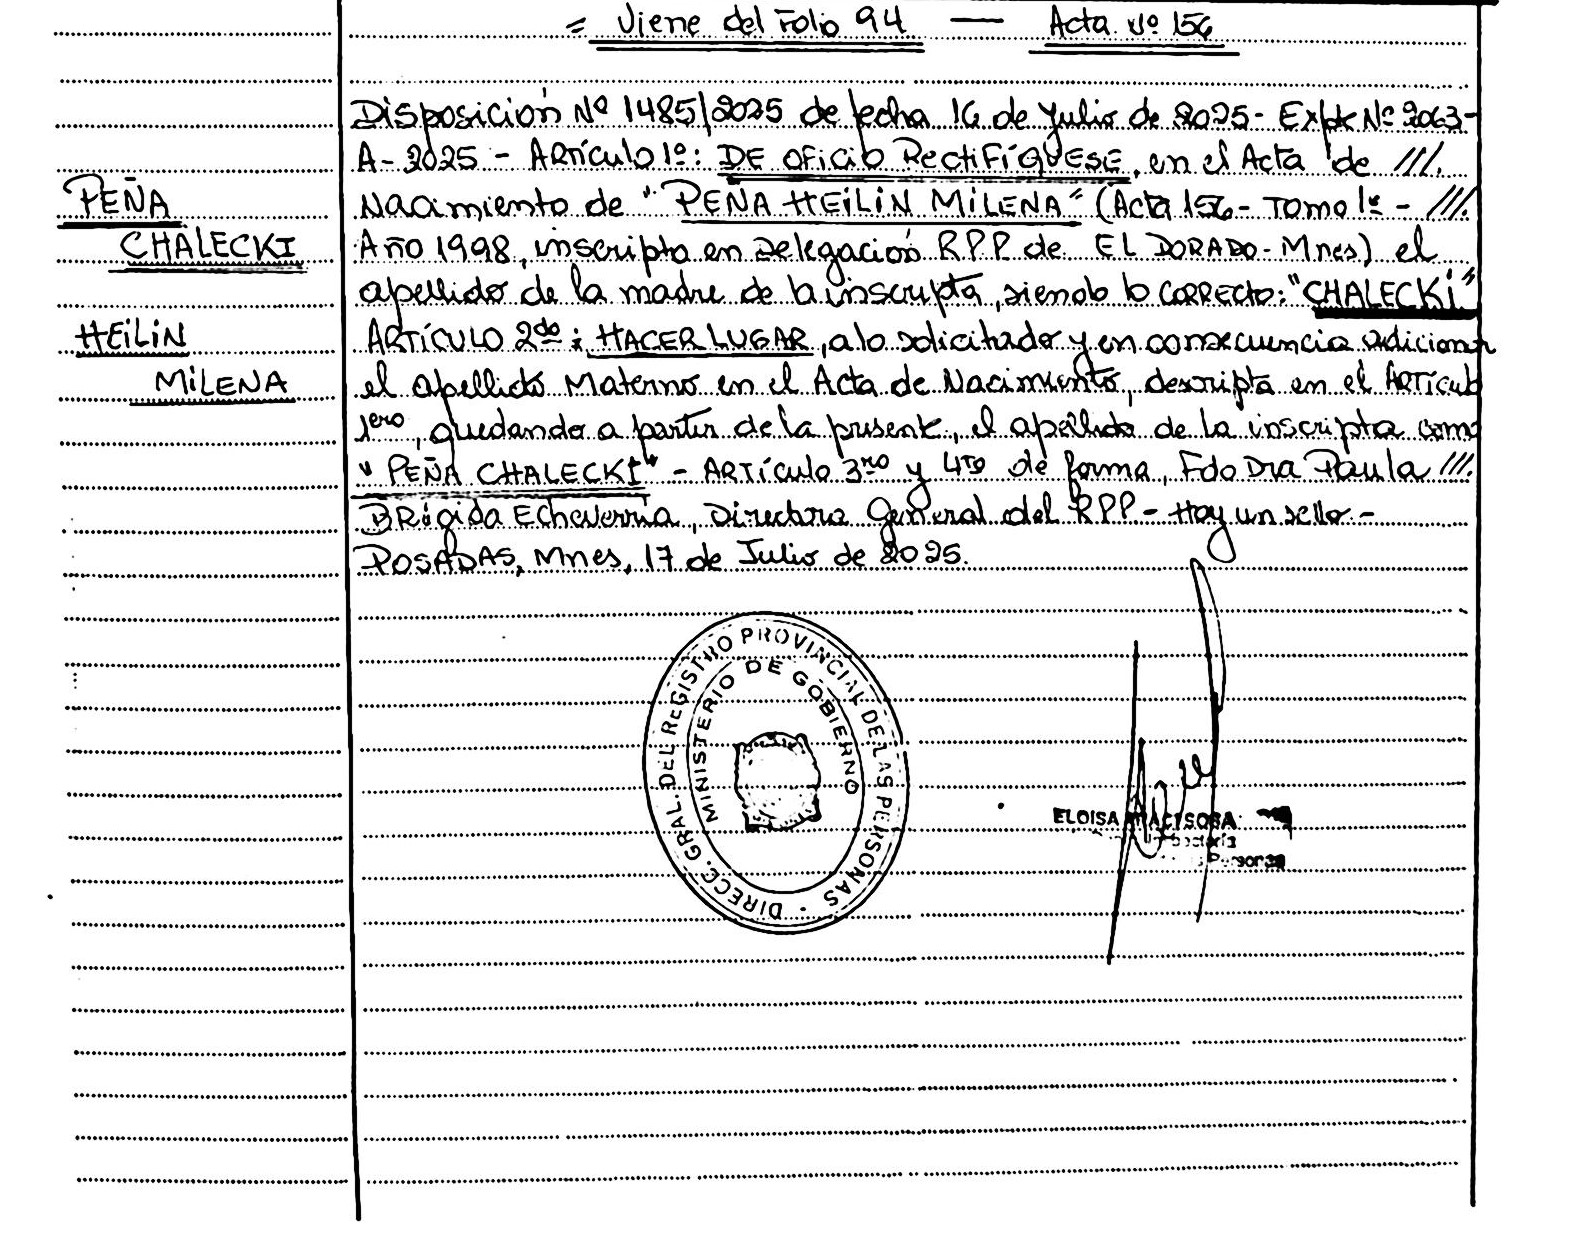 = Viene del Folio 94 — Acta Nº 156
Disposición Nº 1485/2025 de fecha 16 de Julio de 2025- Expte Nº 2063-
A-2025 - Artículo 1º: DE OFICIO RECTIFÍQUESE, en el Acta de ///.
Nacimiento de "PEÑA HEILIN MILENA" (Acta 156- Tomo 1º - ///.
Año 1998, inscripta en Delegación RPP. de EL DORADO-Mnes) el
apellido de la madre de la inscripta, siendo lo correcto: "CHALECKI"
ARTÍCULO 2do: HACER LUGAR, a lo solicitado y en consecuencia adicionar
el apellido Materno en el Acta de Nacimiento, descripta en el ARTÍCulo
1ero, quedando a partir de la presente, el apellido de la inscripta como
"PEÑA CHALECKI" - ARTÍCULO 3ro y 4to de forma, Fdo Dra Paula ///.
BRígida Echeverria, Directora General del RPP - Hay un sello.-
POSADAS, Mnes, 17 de Julio de 2025.
PEÑA
CHALECKI
HEILIN
MILENA
DIRECC. GRAL. DEL REGISTRO PROVINCIAL DE LAS PERSONAS -
MINISTERIO DE GOBIERNO
ELOISA SOSA